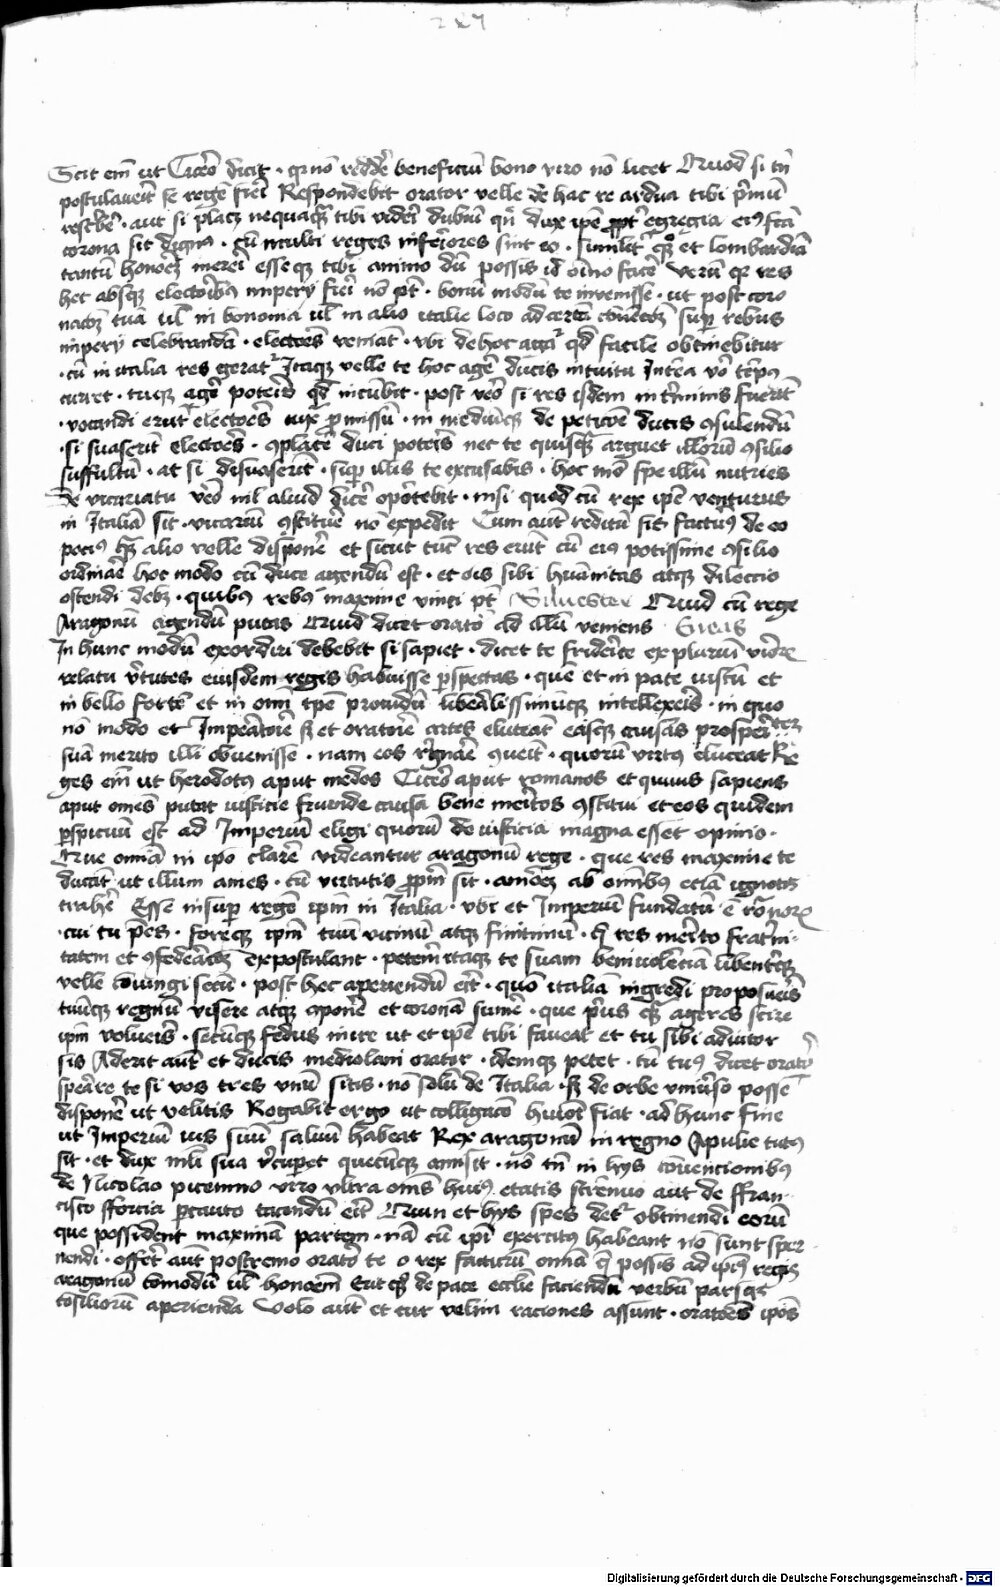 247
Scit em̄ ut Cicero dicit · qr nō redde᷑ beneficiū bono viro nō licet Quod si tn̄
postulaverit se regē fieri Respondebit orator velle de hac re ardua tibi p̄mū
rescribe᷑ · aut si placz nequaqᷓ tibi videri dubiū qn̄ dux ip̄e ꝓpt᷑ egregia eiꝰ fc̄a
corona sit dignꝰ · cū multi reges inferiores sint eo · similit᷑ qꝫ et lombardiā
tantū honorē mereri esse qꝫ tibi animo dū possis id oīno face᷑ Verū qr res
hec absqꝫ electoribꝰ imperij fieri nō pt̄ · bonū modū te invenisse · ut post coro
nacōꝫ tuā ul̄ in bononia ul̄ in alio italie loco ad certā cōvencōꝫ suꝑ rebus
imperij celebrandā · electores veniāt · ubi de hoc agat᷑ qd̄ facile obtinebitur
· cū in italia res gerat᷑ Itaqꝫ velle te hoc age᷑ ducis intuitu Interea vo᷑ tēpꝰ
curret · tuqꝫ age᷑ poteris qd̄ incūbit · post ve᷑o si res isdem in t᷑minis fuerit
· vocandi erūt electores iux ꝓmissū · in mediūqꝫ de peticōe ducis ꝯsulendū
· si suaserīt electores · ꝯplace᷑ duci poteris nec te quisqᷓ arguet illorū ꝯsilio
suffultū · at si disuaserīt · suꝑ illis te excusabis · hoc mō spe illū nutries
De vicariatu ve᷑o nil aliud dice᷑ oportebit · nisi quod cū rex ip̄e venturus
in Italiā sit · vicariū ꝯstitue᷑ nō expedit Cum aūt reditū sit factuꝰ de eo
pociꝰ qᷓ alio velle dispone᷑ et sicut tūc res erūt cū eiꝰ potissime ꝯsilio
ordinare hoc modo cū duce agendū est · et oīs sibi hūanitas atqꝫ dileccio
ostendi debꝫ · quibꝰ rebꝰ maxime vinci pt̄ Silvester Quid cū rege
Aragonū agendū putas Quid dicet orator ad illū veniens Eneas
In hunc modū exordiri debebit si sapiet · dicet te friderice ex plurium videre
relatu v᷑tutes eiusdem regis habuisse ꝑspectas · que et in pace iustū et
in bello fortē et in omni tp̄e providū liberalissimūqꝫ intellexeris · in quo
nō modo et Imperatorie sꝫ et oratorie artes eluceāt easqꝫ causas prosperitatē
suā merito illi obvenisse · nam eos regnare ꝯvenit · quorū virtus eluceat Re
ges em̄ ut herodotꝰ aput medos Cicero aput romanos et quivis sapiens
aput omes putat iusticie fruende causa bene meritos ꝯstitui et eos quidem
ꝑspicuū est ad Imperiū eligi quorū de iusticia magna esset opinio ·
Que omnia in ip̄o clare᷑ videantur aragonū rege · que res maxime te
ducat ut illum ames · cū virtutis ꝓpriū sit · amorē ab omībꝰ eciā ignotis
trahe᷑ Esse insuꝑ regē ip̄m in Italia · ubi et Imperiū fundatū ē romanorū
· cui tu p̄es · foreqꝫ ip̄m tuū vicinū atqꝫ finitimū · q̄ res merito fraterni-
tatem et ꝯfederacōꝫ expostulant · petere itaqꝫ te suam benivolēciā libenterqꝫ
velle cōiungi secū · post hec aperiendū erit · quō italiā ingredi proposueris
tuūqꝫ regnū visere atqꝫ ꝯpone᷑ et coronā sume᷑ · que p᷑us qᷓ ageres scire
ip̄m volueris · secūqꝫ fedus inire ut et ip̄e tibi faveat et tu sibi adiutor
sis Aderit aūt et ducis mediolani orator · idemqꝫ petet · tū tuꝰ dicet orator
sperare te si vos tres unū sitis · nō solū de Italia · sꝫ de orbe universo posse
dispone᷑ ut velitis Rogabit ergo ut colligacō huiōi fiat · ad hunc fine
ut Imperiū ius suū salvū habeat Rex aragonū in regno Apulie tutꝰ
sit · et dux mlī sua recuperet quecūqꝫ amisit · nō tn̄ in hys convencionibꝰ
de Nicolao picennino viro ultra omēs huiꝰ etatis strēnuo aut de ffran-
cisco sfforcia ꝑcauto tacendū erit Quin et hys spes detᷣ obtinendi eorū
que possident maximā partem · nā cū ip̄i exercitꝰ habeant nō sunt sper
nendi · offeret aūt postremo orator te o rex facturū omīa q̄ possis ad ip̄iꝰ regis
aragonū cōmodū ul̄ honorem Erit qꝫ de pace ecclīe faciendū verbū parsqꝫ
cōsiliorū aperienda Volo aūt et cur velim raciones assunt · oratores ip̄os
Digitalisierung gefördert durch die Deutsche Forschungsgemeinschaft · DFG